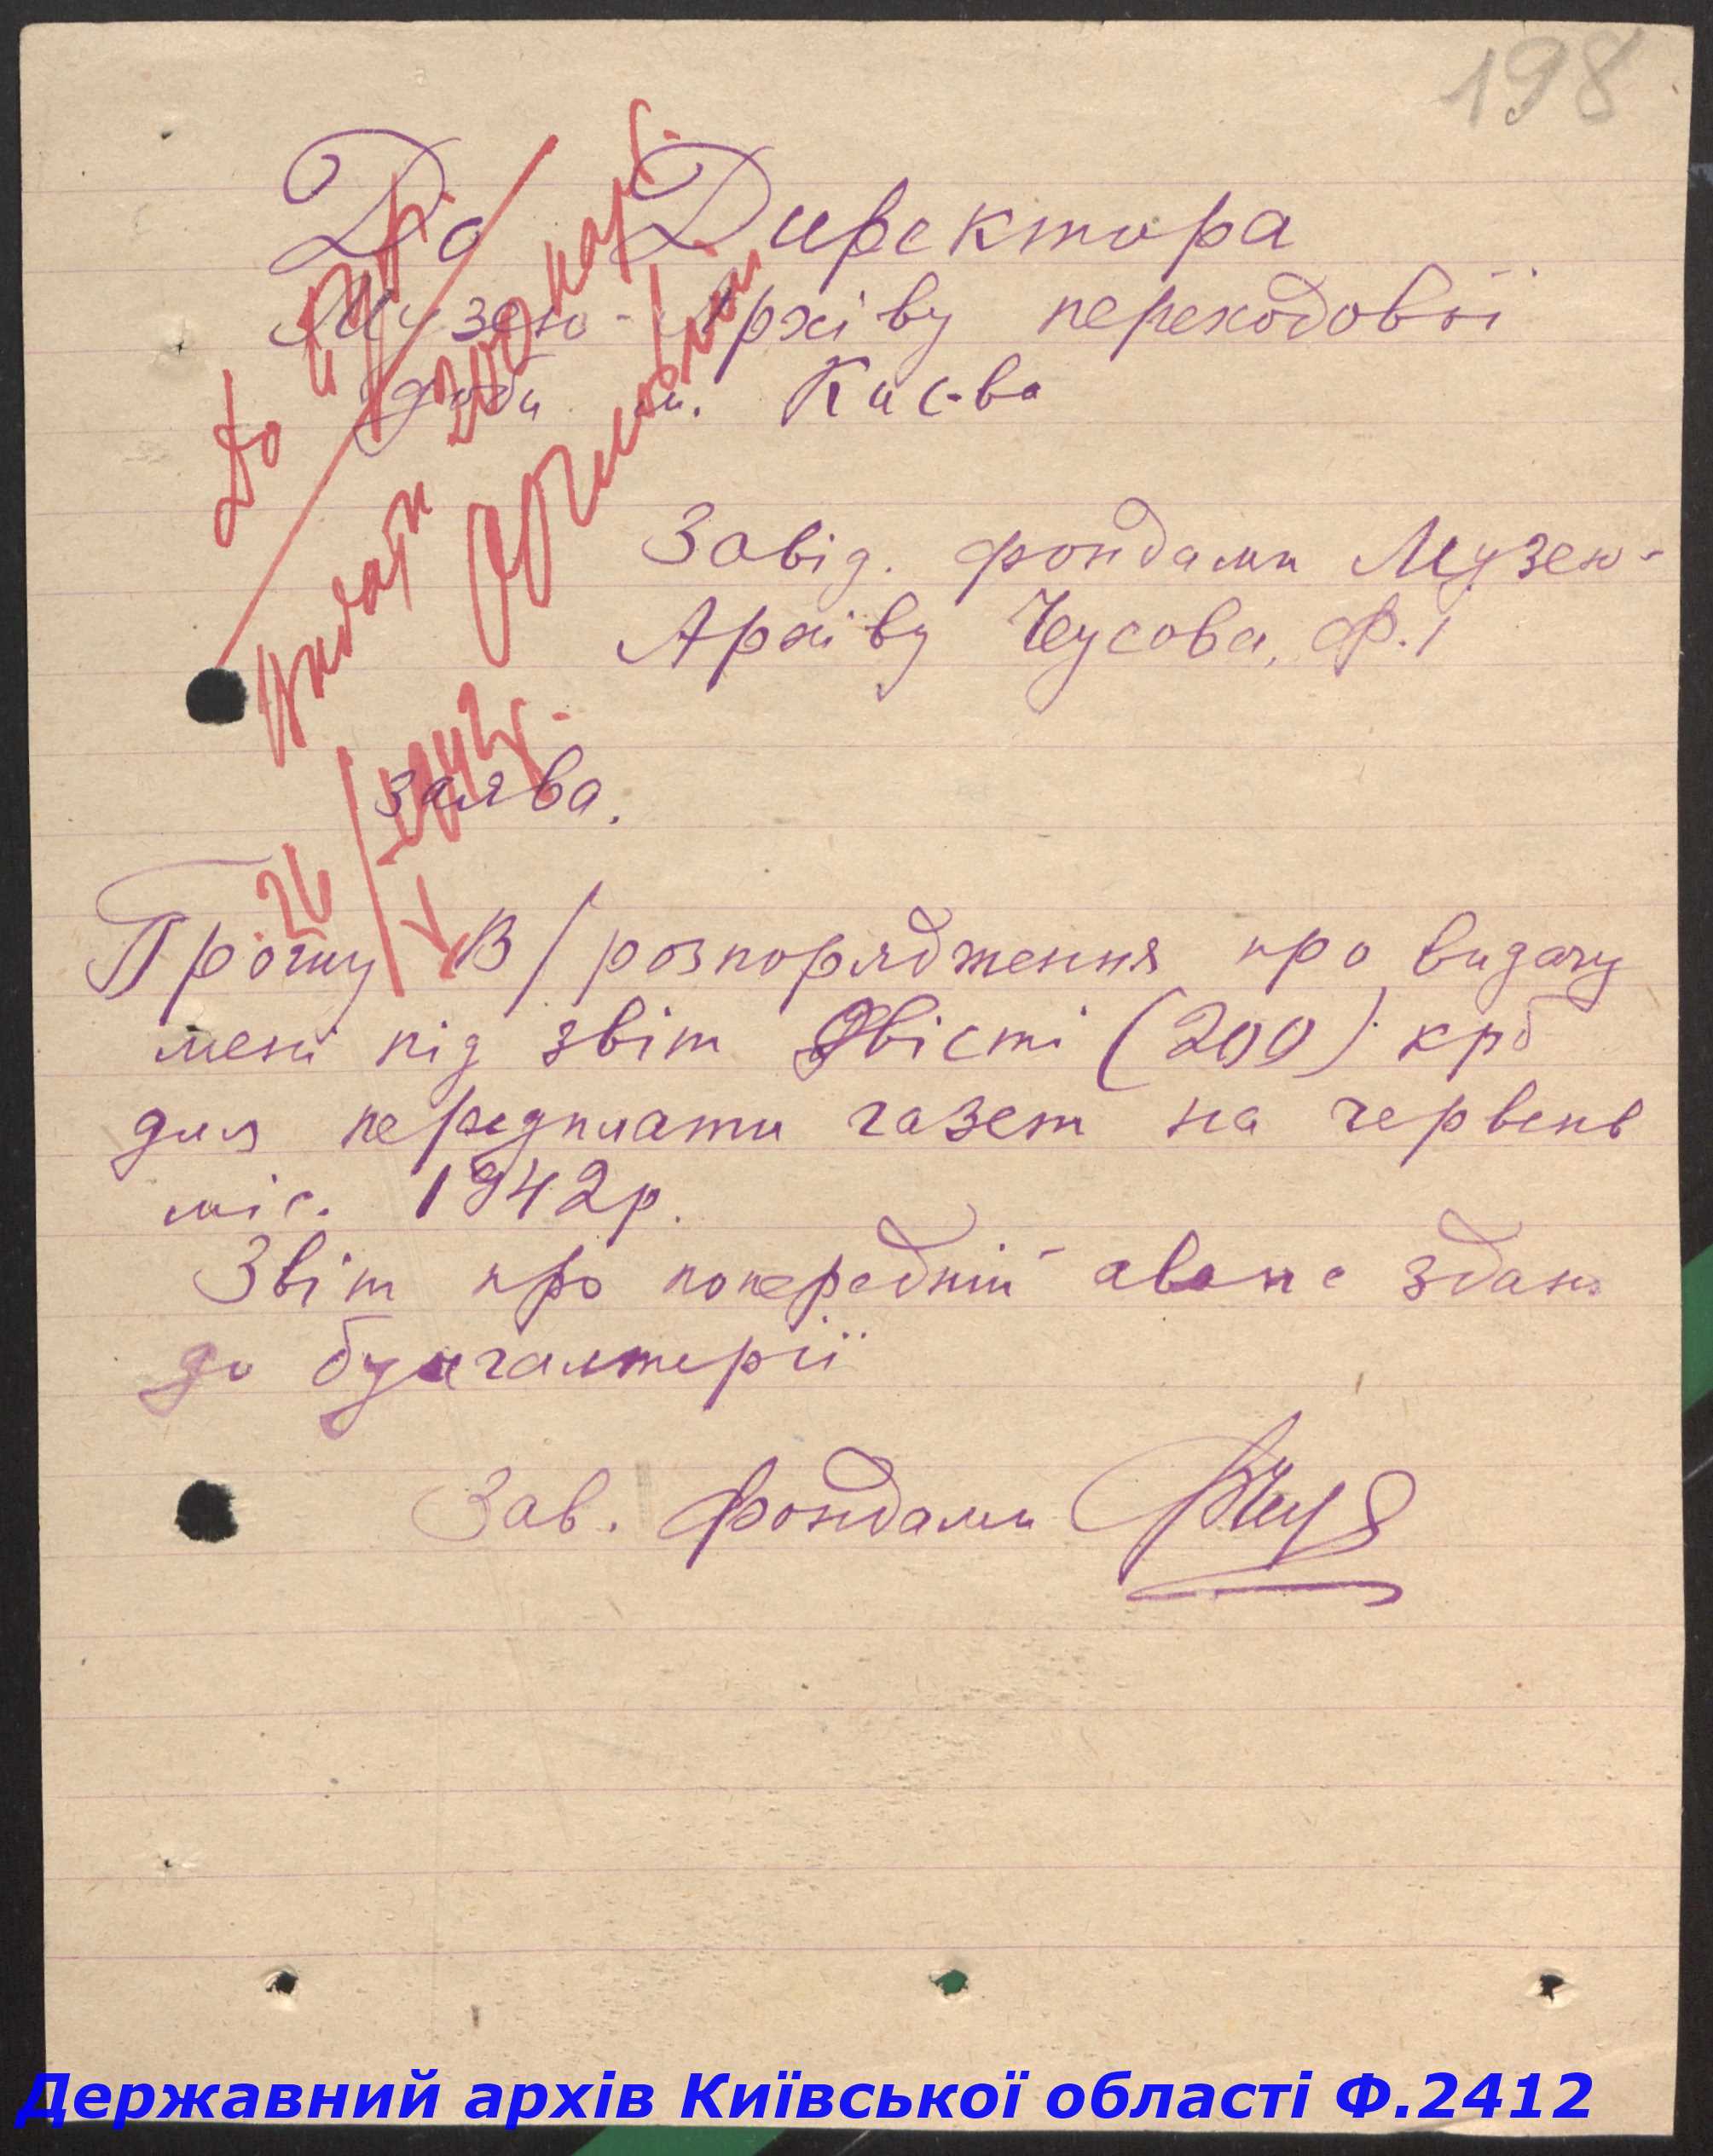 198
До Директора
Музею-Архіву переходової
доби м. Києва
Завід. фондами Музею-
Архіву Чусова, Ф. І
До
видати 200 карб.
26/V-1942р.
заява.
Прошу В/розпорядження про видачу
мені під звіт Двісті (200) крб
для передплати газет на червень
міс. 1942р.
Звіт про попередній аванс здано
до бухгалтерії
Зав. фондами
Державний архів Київської області Ф.2412